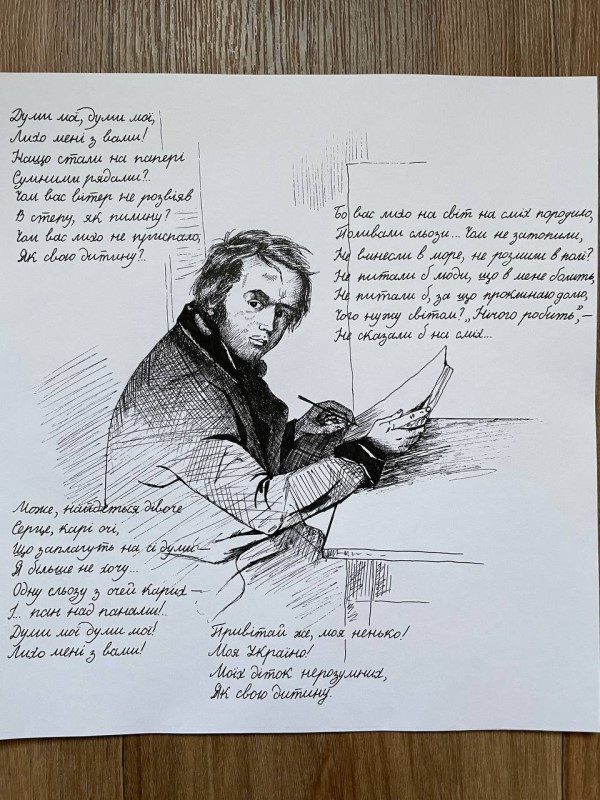 Думи мої, думи мої,
Лихо мені з вами!
Нащо стали на папері
Сумними рядами?..
Чом вас вітер не розвіяв
В степу, як пилину?
Чом вас лихо не приспало,
Як свою дитину?..
Бо вас лихо на світ на сміх породило,
Поливали сльози... Чом не затопили,
Не винесли в море, не розмили в полі?
Не питали б люди, що в мене болить,
Не питали б, за що проклинаю долю,
Чого нужу світом? „Нічого робить”, —
Не сказали б на сміх...
Може, найдеться дівоче
Серце, карі очі,
Що заплачуть на сі думи —
Я більше не хочу...
Одну сльозу з очей карих —
І.. пан над панами!..
Думи мої думи мої!
Лихо мені з вами!
Привітай же, моя ненько!
Моя Україно!
Моїх діток нерозумних,
Як свою дитину.